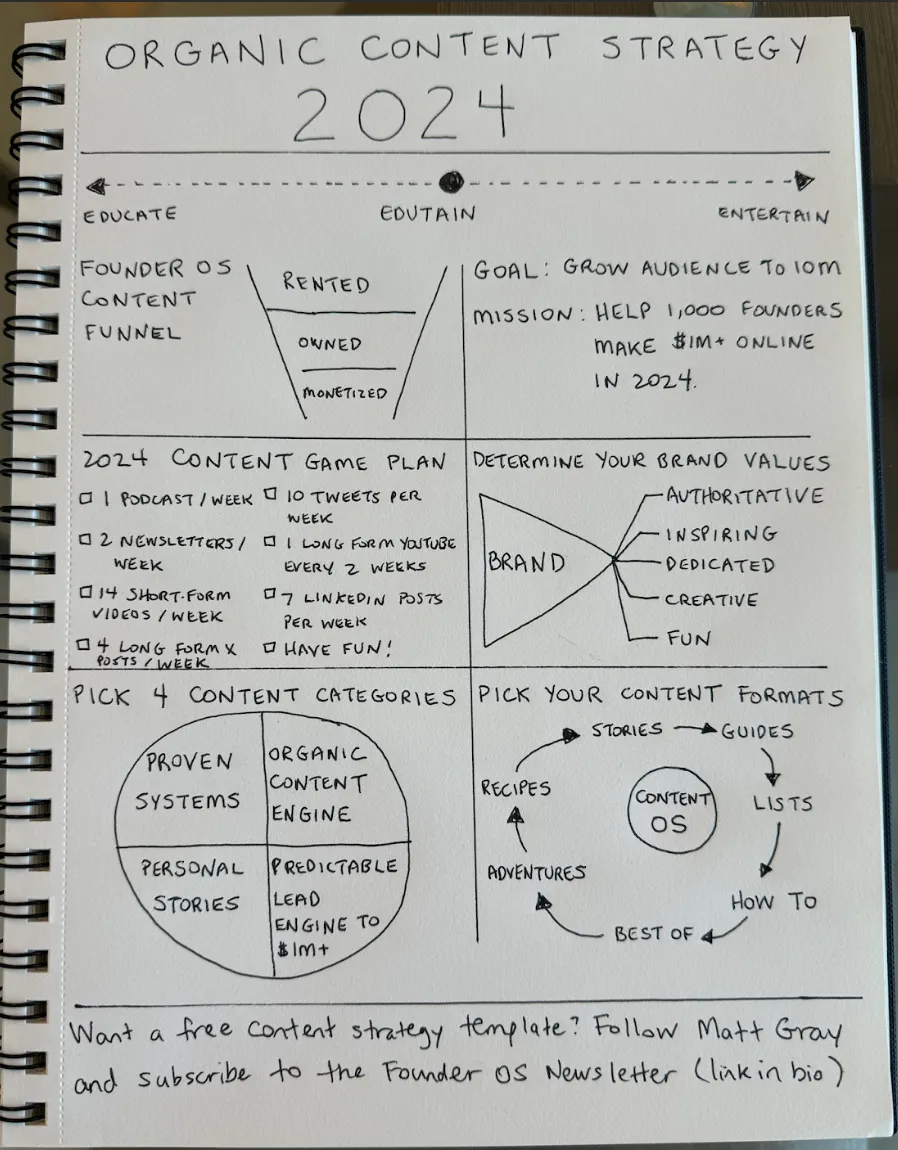 ORGANIC CONTENT STRATEGY
2024
EDUCATE
EDUTAIN
ENTERTAIN
FOUNDER OS
CONTENT
FUNNEL
RENTED
OWNED
MONETIZED
GOAL: GROW AUDIENCE TO 10M
MISSION: HELP 1,000 FOUNDERS
MAKE $1M+ ONLINE
IN 2024.
2024 CONTENT GAME PLAN
1 PODCAST/WEEK
2 NEWSLETTERS/
WEEK
14 SHORT-FORM
VIDEOS/WEEK
4 LONG FORM X
POSTS/WEEK
10 TWEETS PER
WEEK
1 LONG FORM YOUTUBE
EVERY 2 WEEKS
7 LINKEDIN POSTS
PER WEEK
HAVE FUN!
DETERMINE YOUR BRAND VALUES
BRAND
AUTHORITATIVE
INSPIRING
DEDICATED
CREATIVE
FUN
PICK 4 CONTENT CATEGORIES
PROVEN
SYSTEMS
ORGANIC
CONTENT
ENGINE
PERSONAL
STORIES
PREDICTABLE
LEAD
ENGINE TO
$1M+
PICK YOUR CONTENT FORMATS
STORIES
GUIDES
LISTS
HOW TO
BEST OF
ADVENTURES
RECIPES
CONTENT
OS
Want a free content strategy template? Follow Matt Gray
and subscribe to the Founder OS Newsletter (link in bio)